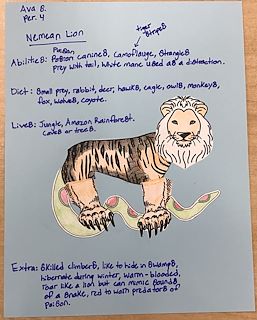 Ava S.
Per. 4
Nemean Lion
tiger
stripes
Poison
Abilities: Poison canines, Camoflauge, Strangle
prey with tail, white mane used as a distraction.
Diet: Small prey, rabbit, deer, hawks, eagle, owls, monkeys,
fox, wolves, coyote.
Lives: Jungle, Amazon Rainforest.
caves or trees.
Extra: Skilled climbers, like to hide in swamps,
hibernate during winter, warm-blooded,
roar like a lion but can mimic sounds
of a snake, red to warn predators of
poison.